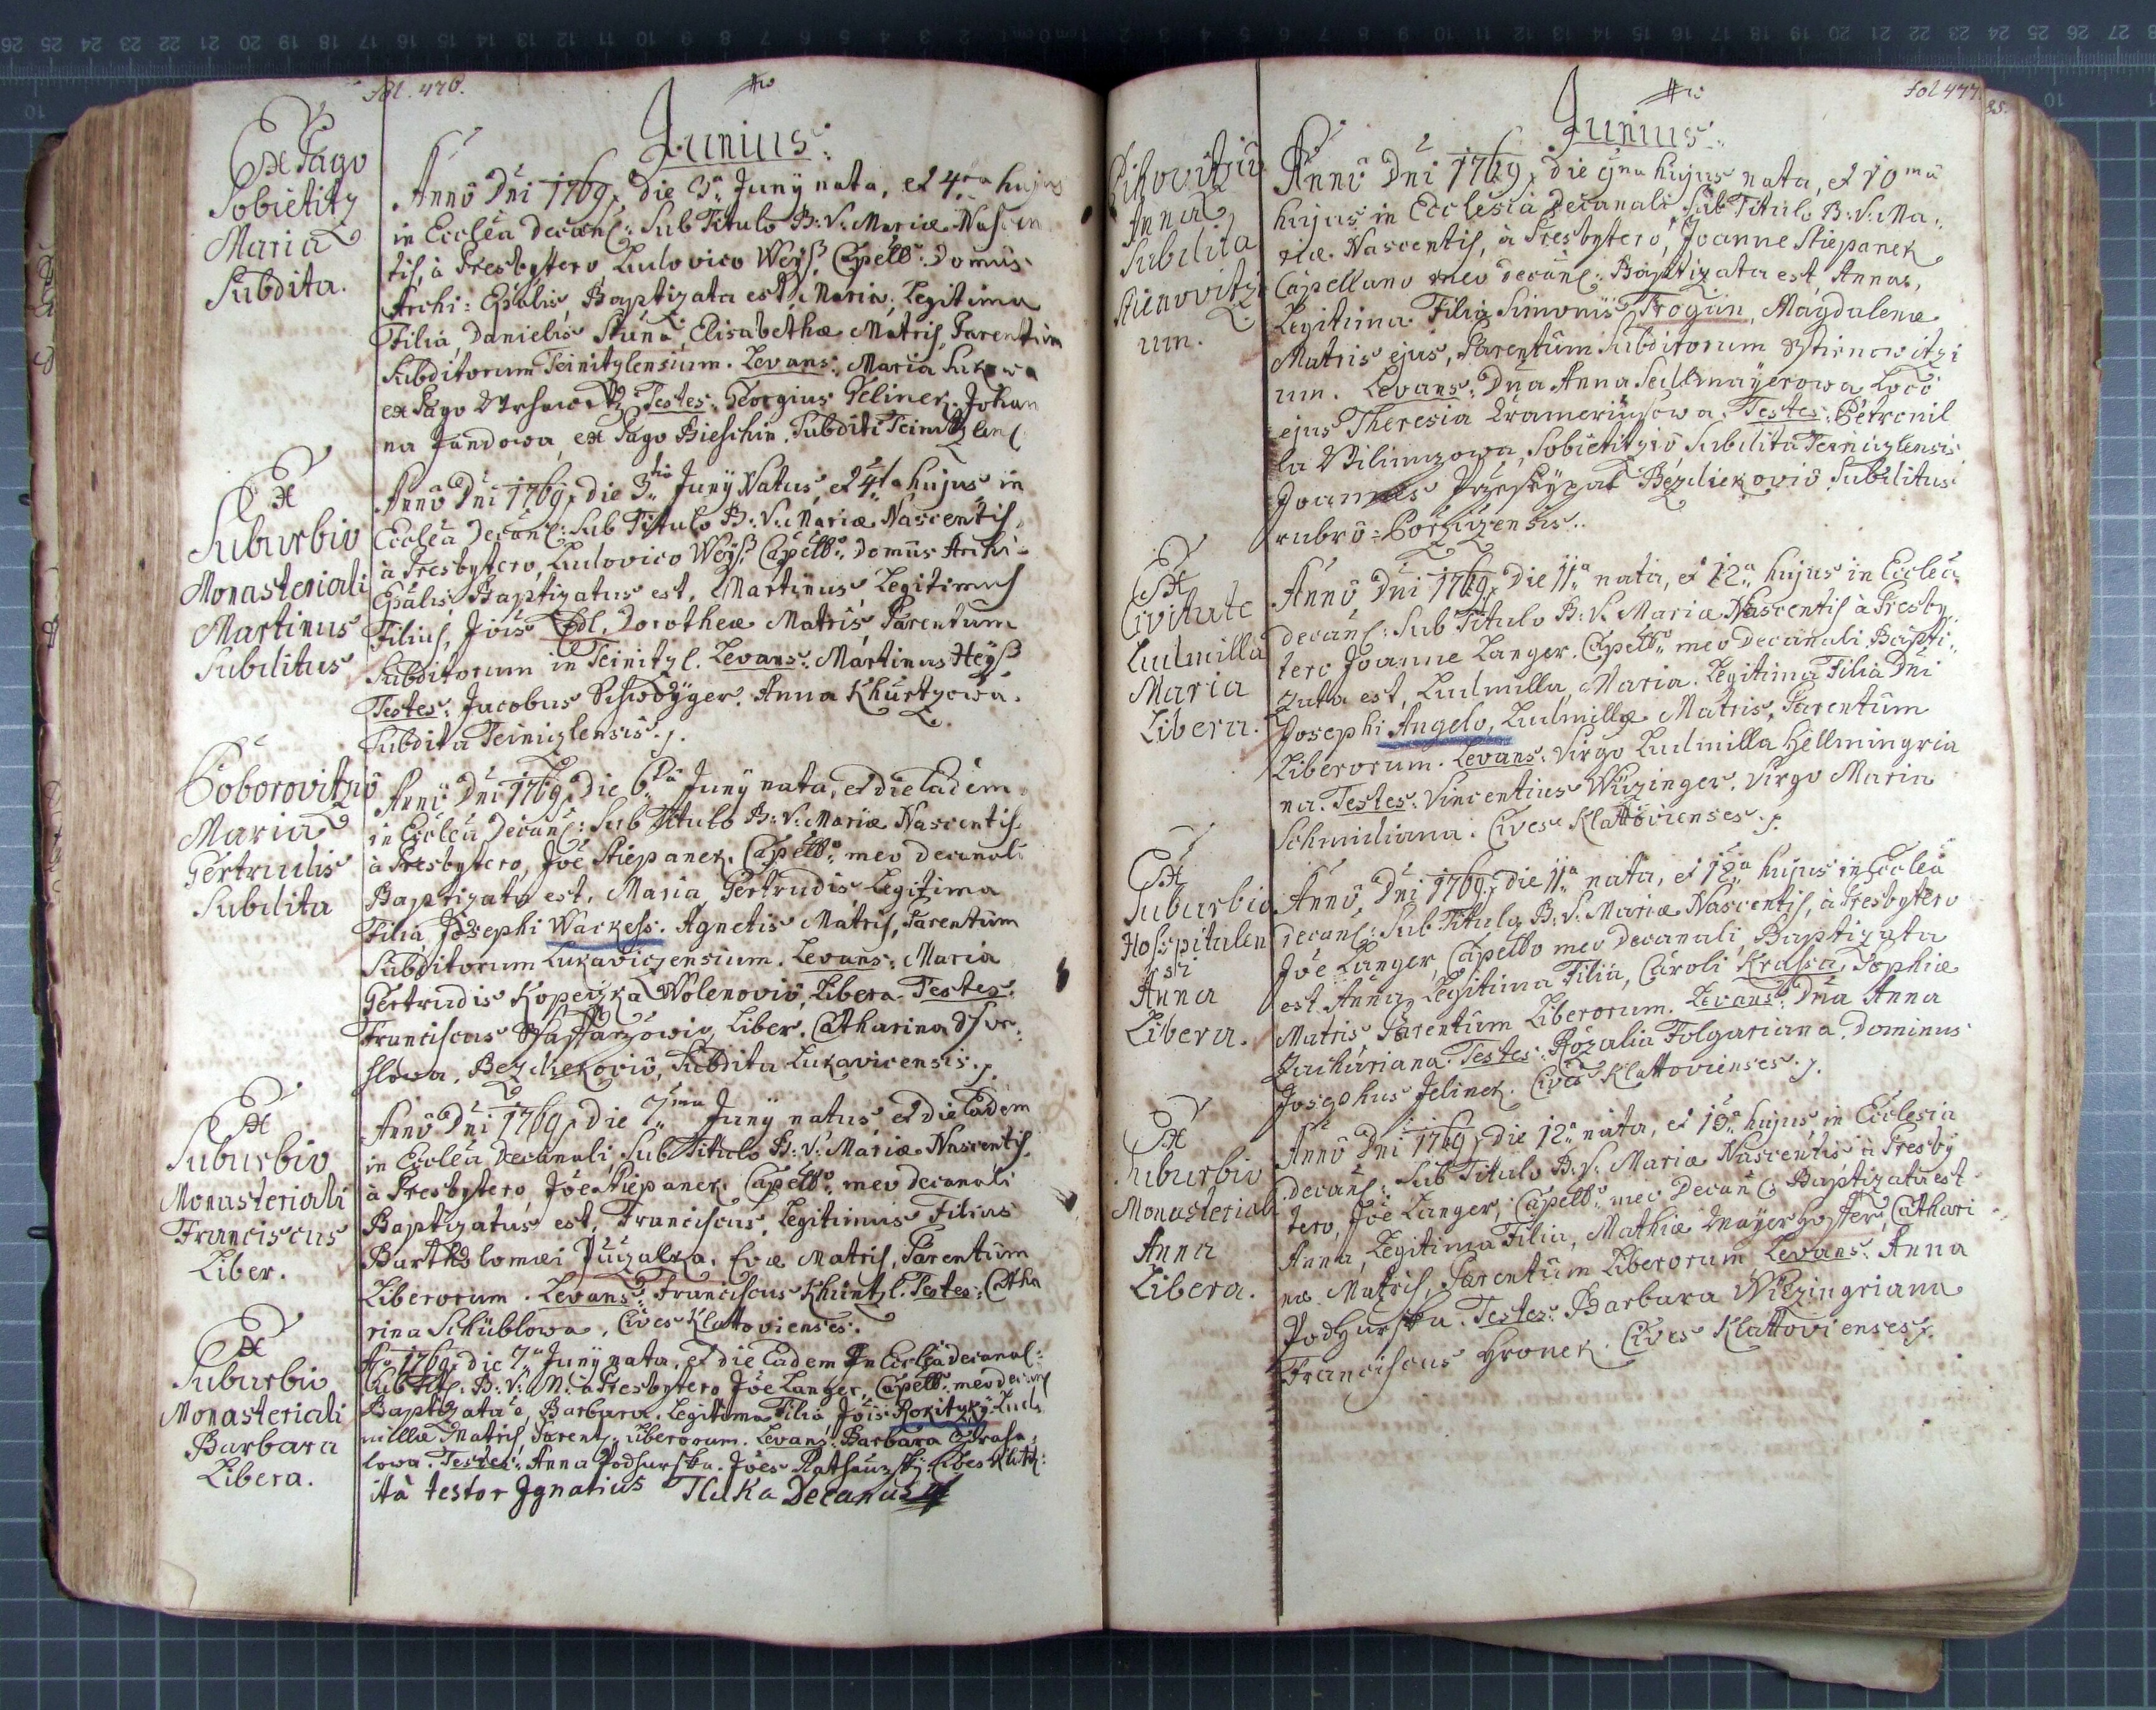 fol. 476.
Junius.
Ex Pago
Sobietitz
Maria
Subdita.
Anno Dni 1769, die 3a Juny nata, et 4ta hujus
in Ecclea Decanl: Sub Titulo B: V: Mariæ Nascen
tis, à Presbytero, Ludovico Weyß, Capello Domus
Archi: Epalis, Baptizata est, Maria, Legitima
Filia, Danielis Stuna, Elisabethæ Matris, Parentum
Subditorum Teinitzlensium. Levans: Maria
ex Pago Testes: Georgius Jelinek. Johan
na Jandowa, ex Pago Bieschin, Subditi Teinitzlens
Ex
Suburbio
Monasteriali
Martinus
Subditus
Anno Dni 1769, die 3tia Juny Natus, et 4ta hujus in
Ecclea Decanl: Sub Titulo B: V: Mariæ Nascentis,
à Presbytero, Ludovico Weyß Capello Domus Archi-
Epalis Baptizatus est, Martinus, Legitimus
Filius, Jois Edl, Dorotheæ Matris, Parentum
Subditorum in Teinitzl. Levans: Martinus Heyß
Testes: Jacobus Schwdyger. Anna Khürtzowa.
Subdita Teinizlensis.
Boborovitzio
Maria
Gertrudis
Subdita
Anno Dni 1769, Die 6ta Juny nata, et die Eadem
in Ecclea Decanl: Sub Titulo B: V: Mariæ Nascentis
à Presbytero, Joe Stiepanek, Capello meo decanali
Baptizata est, Maria Gertrudis Legitima
Filia, Josephi Wackess. Agnetis Matris, Parentum
Subditorum Lukaviczensium. Levans: Maria
Gertrudis Kopeczka Wolenovio, Libera. Testes:
Franciscus Liber. Catharina
slowa, Bezdiekovio, Subdita Lukavicensis.
Ex
Suburbio
Monasteriali
Franciscus
Liber.
Anno Dni 1769, Die 7ma Juny natus, et die Eadem
in Ecclea Decanali, Sub Titulo B: V: Mariæ Nascentis
à Presbytero, Joe Stiepanek, Capello meo Decanali
Baptizatus est, Franciscus, Legitimus Filius
Bartholomæi Puzalka, Evæ Matris, Parentum
Liberorum. Levans: Franciscus Khüntzl. Testes: Catha
rina Schüblowa, Cives Klattovienses.
Ex
Suburbio
Monasteriali
Barbara
Libera.
Ao 1769, die 7a Juny nata, et die Eadem In Ecclea decanal:
Sub Tit: B: V: M: à Presbytero Joe Langer, Capello meo decanl
Baptizata e, Barbara, Legitima Filia, Jois Rokitzky, Lud
millæ Matris Parent: Liberorum. Levans: Barbara
lowa. Testes: Anna Podhurska. Joes Cives Klatt:
ità testor Ignatius Tluka Decanus
fol 477.
25.
Junius.
Anna
Subdita
um.
Anno Dni 1769, die 9na hujus nata, et 10ma
hujus in Ecclesia Decanali Sub Titulo B: V: Ma:
riæ Nascentis, à Presbytero, Joanne Stiepanek
Capellano meo decanl: Baptizata est Anna,
Legitima Filia Simonis Trogan, Magdalenæ
Matris ejus, Parentum Subditorum
um. Levans: Dna Anna Sedlmayerowa, Loco
ejus Theresia Krameriusowa. Testes: Petronil
la Wilimzowa, Sobietitzio Subdita Teinizlensis
Joannes Bezdiekovio Subditus
rubro-Porzizensis.
Ex
Civitate
Ludmilla
Maria
Libera.
Anno Dni 1769, Die 11a nata, et 12a hujus in Ecclea
decanl: Sub Titulo B: V: Mariæ Nascentis à Presby:
tero Joanne Langer, Capello meo Decanali Bapti:
zata est, Ludmilla, Maria. Legitima Filia Dni
Josephi Angelo, Ludmillæ Matris, Parentum
Liberorum. Levans: Virgo Ludmilla Hellmingria
na. Testes: Vincentius Wizinger. Virgo Maria
Schmidiana. Cives Klattovienses.
Ex
Suburbio
Hosspitalen
si
Anna
Libera.
Anno Dni 1769, die 11a nata, et 12a hujus in Ecclea
decanl: Sub Titulo B: V: Mariæ Nascentis, à Presbytero
Joe Langer, Capello meo Decanali, Baptizata
est Anna, Legitima Filia, Caroli Krasa, Sophiæ
Matris, Parentum Liberorum. Levans: Dna Anna
Zachariana. Testes: Rozalia Folgariana. Dominus
Josephus Jelinek. Cives Klattovienses.
Ex
Suburbio
Monasteriali
Anna
Libera.
Anno Dni 1769, Die 12a nata, et 13a hujus in Ecclesia
decanl: Sub Titulo B: V: Mariæ Nascentis à Presby
tero, Joe Langer, Capello meo Decanl: Baptizata est
Anna, Legitima Filia, Mathiæ Mayerhoffer, Cathari
næ Matris, Parentum Liberorum Levans: Anna
Podhurska. Testes: Barbara Witzingriana
Franciscus Hronek. Cives Klattovienses.